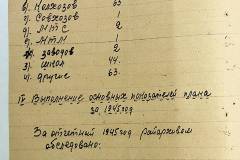 б). Колхозов 65
г). Совхозов 1
д). МТС 2
е). МТМ 1
ж). заводов 2
з). школ 44.
и). другие 63.
IV Выполнение основных показателей плана
за 1945 год
За отчетный 1945 год райархивом
обследовано: